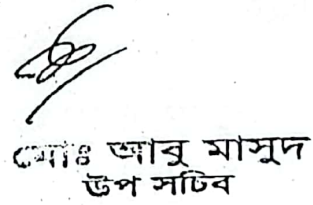 মোঃ আবু মাসুদ
উপ সচিব